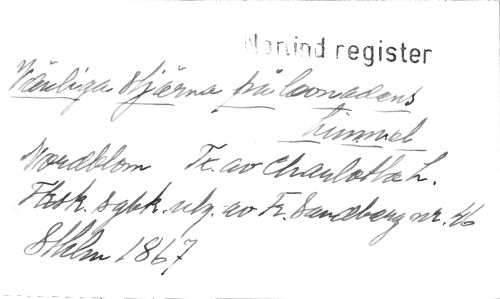 Norlind register
Vänliga stjärna på levnadens
himmel
Nordblom Tr. av Charlotta L.
Fosk. sgbk. utg. av Fr. Sandberg nr. 46
Sthlm 1867